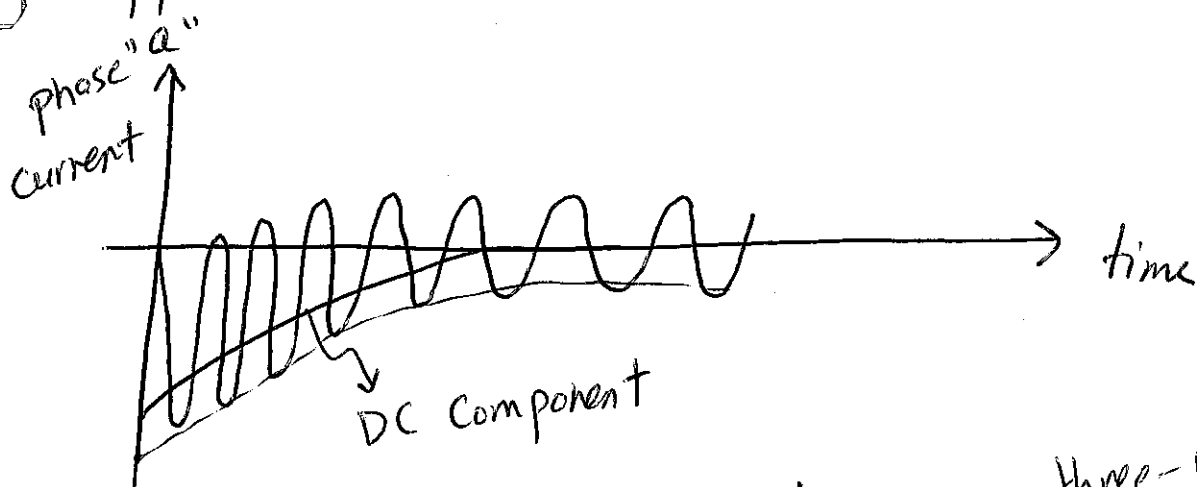 phase "a"
current
time
DC Component
three-